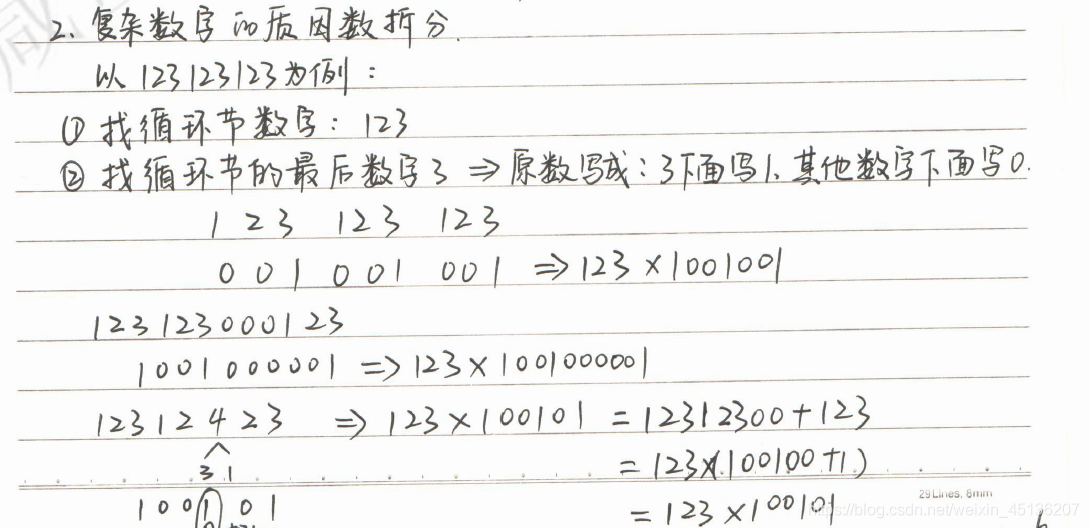 2、复杂数字的质因数拆分.
以123123123为例：
① 找循环节数字：123
② 找循环节的最后数字3 ⇒ 原数写成：3下面写1、其他数字下面写0.
1 2 3 1 2 3 1 2 3
0 0 1 0 0 1 0 0 1 ⇒ 123×1001001
123123000123
1001000001 ⇒ 123×1001000001
12312423 ⇒ 123×100101 = 12312300+123
3 1 = 123×(100100+1)
1 0 0 1 0 1 = 123×100101
29 Lines, 8mm
https://blog.csdn.net/weixin_45136207